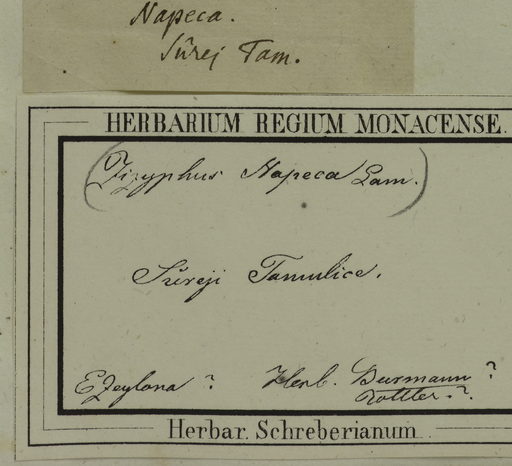 Napeca.
Sûrej Tam.
HERBARIUM REGIUM MONACENSE.
(Zizyphus Napeca Lam.)
Sûreji Tamulice.
E Zeylona ? Herb. Burmann ?
Rottler. ?.
Herbar. Schreberianum